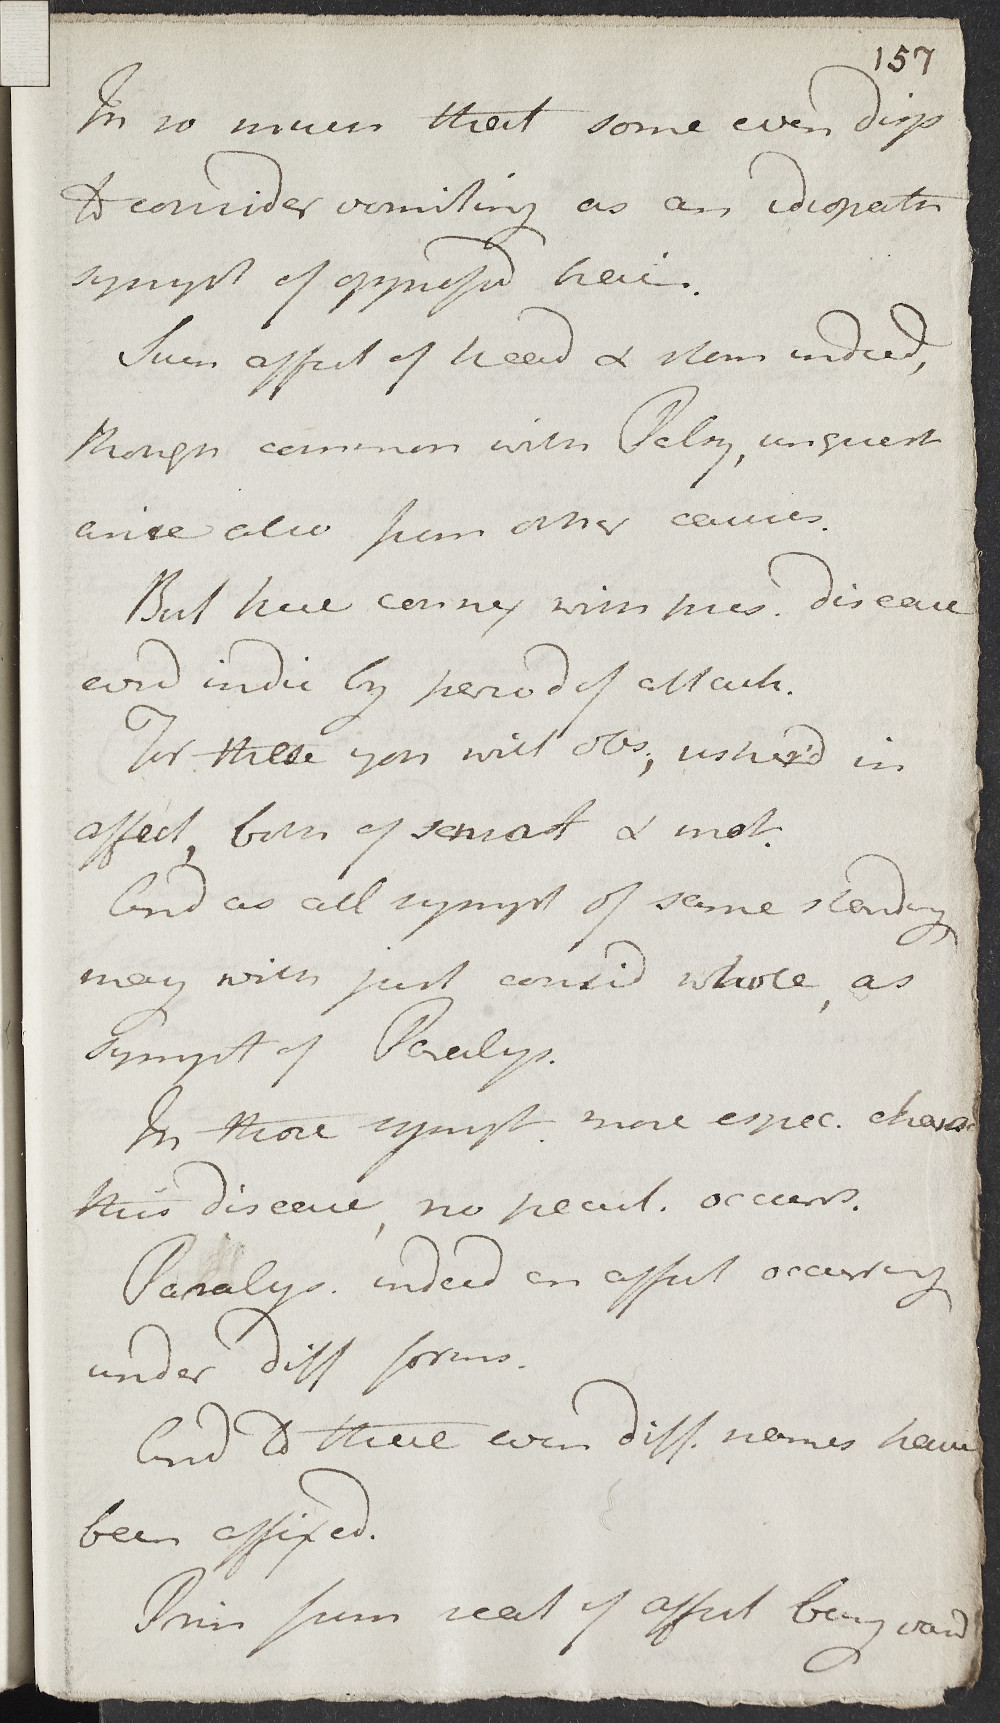 157
In so much that some even disp
to consider vomiting as an idiopath
sympt of oppressd brain.
Such affect of head & stom indeed,
though common with Palsy, unquest
arise also from other causes.
But here connex with pres. disease
evid indic by period of attack.
For these you will obs, usher'd in
affect, both of sensat & mot.
And as all sympt of same standing
may with just consid whole, as
sympt of Paralys.
In those sympt. more espec. charac
this disease, no pecul. occurs.
Paralys. indeed an affect occurring
under diff forms.
And to these even diff. names have
been affixed.
Prin from seat of affect being varid